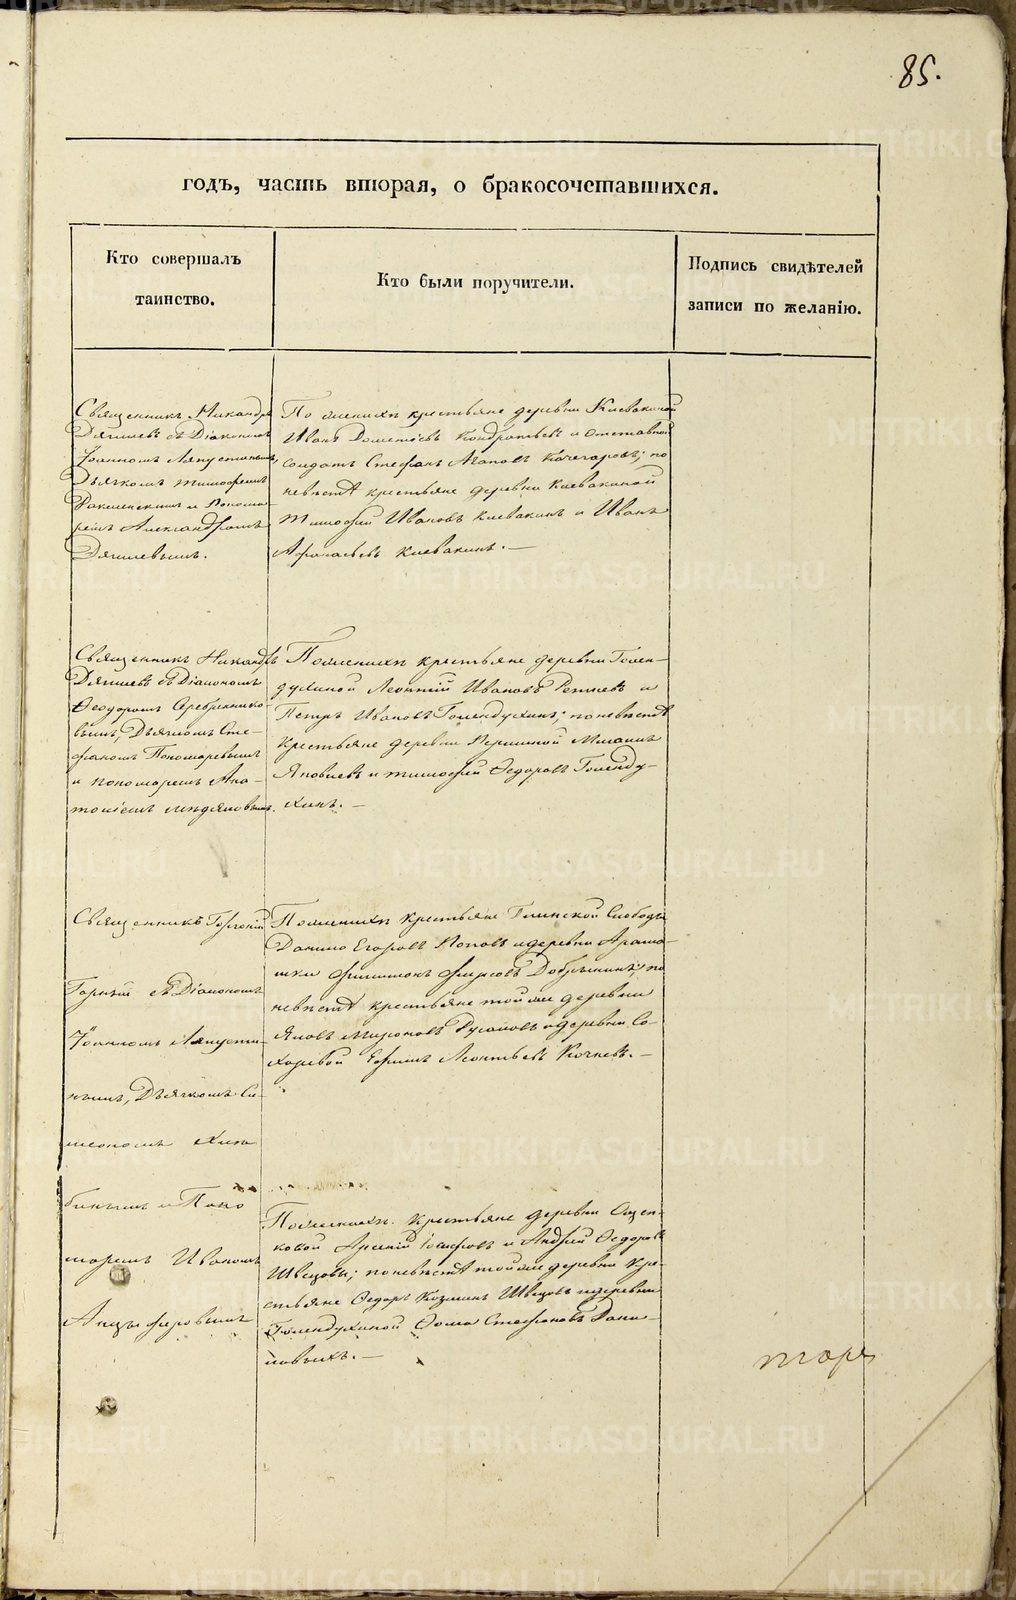 85.
годъ, часть вторая, о бракосочетавшихся.
Кто совершалъ
таинство.
Кто были поручители.
Подпись свидѣтелей
записи по желанію.
Священникъ Никандръ
Дягилевъ съ Діакономъ
Іоанномъ Ляпустинымъ,
Дьячкомъ Тимофеемъ
и Понома
ремъ Александромъ
Дягилевымъ.
По женихѣ крестьяне деревни Клевакиной
Иванъ Дометіевъ Кондратьевъ и отставной
солдатъ Стефанъ Агаповъ Кочегаровъ; по
невѣстѣ крестьяне деревни Клевакиной
Тимофей Ивановъ Клевакинъ и Иванъ
Клевакинъ.
Священникъ Никандръ
Дягилевъ съ Діакономъ
Ѳеодоромъ Серебрянико-
вымъ, Дьячкомъ Сте-
фаномъ Пономаревымъ
и пономаремъ Ана-
толіемъ
По женихѣ крестьяне деревни Голен-
духиной Леонтій Ивановъ и
Петръ Ивановъ Голендухинъ; по невѣстѣ
крестьяне деревни Першиной
Яковлевъ и Тимофей Ѳедоровъ Голенду-
хинъ.
Священникъ Горгоній
Горныхъ съ Діакономъ
Іоанномъ Ляпусти-
нымъ, Дьячкомъ Си-
меономъ Хло
пинымъ и Поно
маремъ Иваномъ
Анцыферовымъ
По женихѣ крестьяне Глинской Слободы
Данило Егоровъ Поповъ и деревни Арама-
шки Филимонъ Фирсовъ Добрынинъ; по
невѣстѣ крестьяне той же деревни
Яковъ Мироновъ Русаковъ и деревни Со-
харевой Ефимъ Леонтьевъ Кочневъ.
По женихѣ крестьяне деревни Ощеп-
ковой Арсеній и Андрей Ѳедоровъ
Швецовы; по невѣстѣ той же деревни кре-
стьяне Ѳедоръ Козминъ Швецовъ и деревни
Голендухиной Ѳома Стефановъ Дани-
ловыхъ.